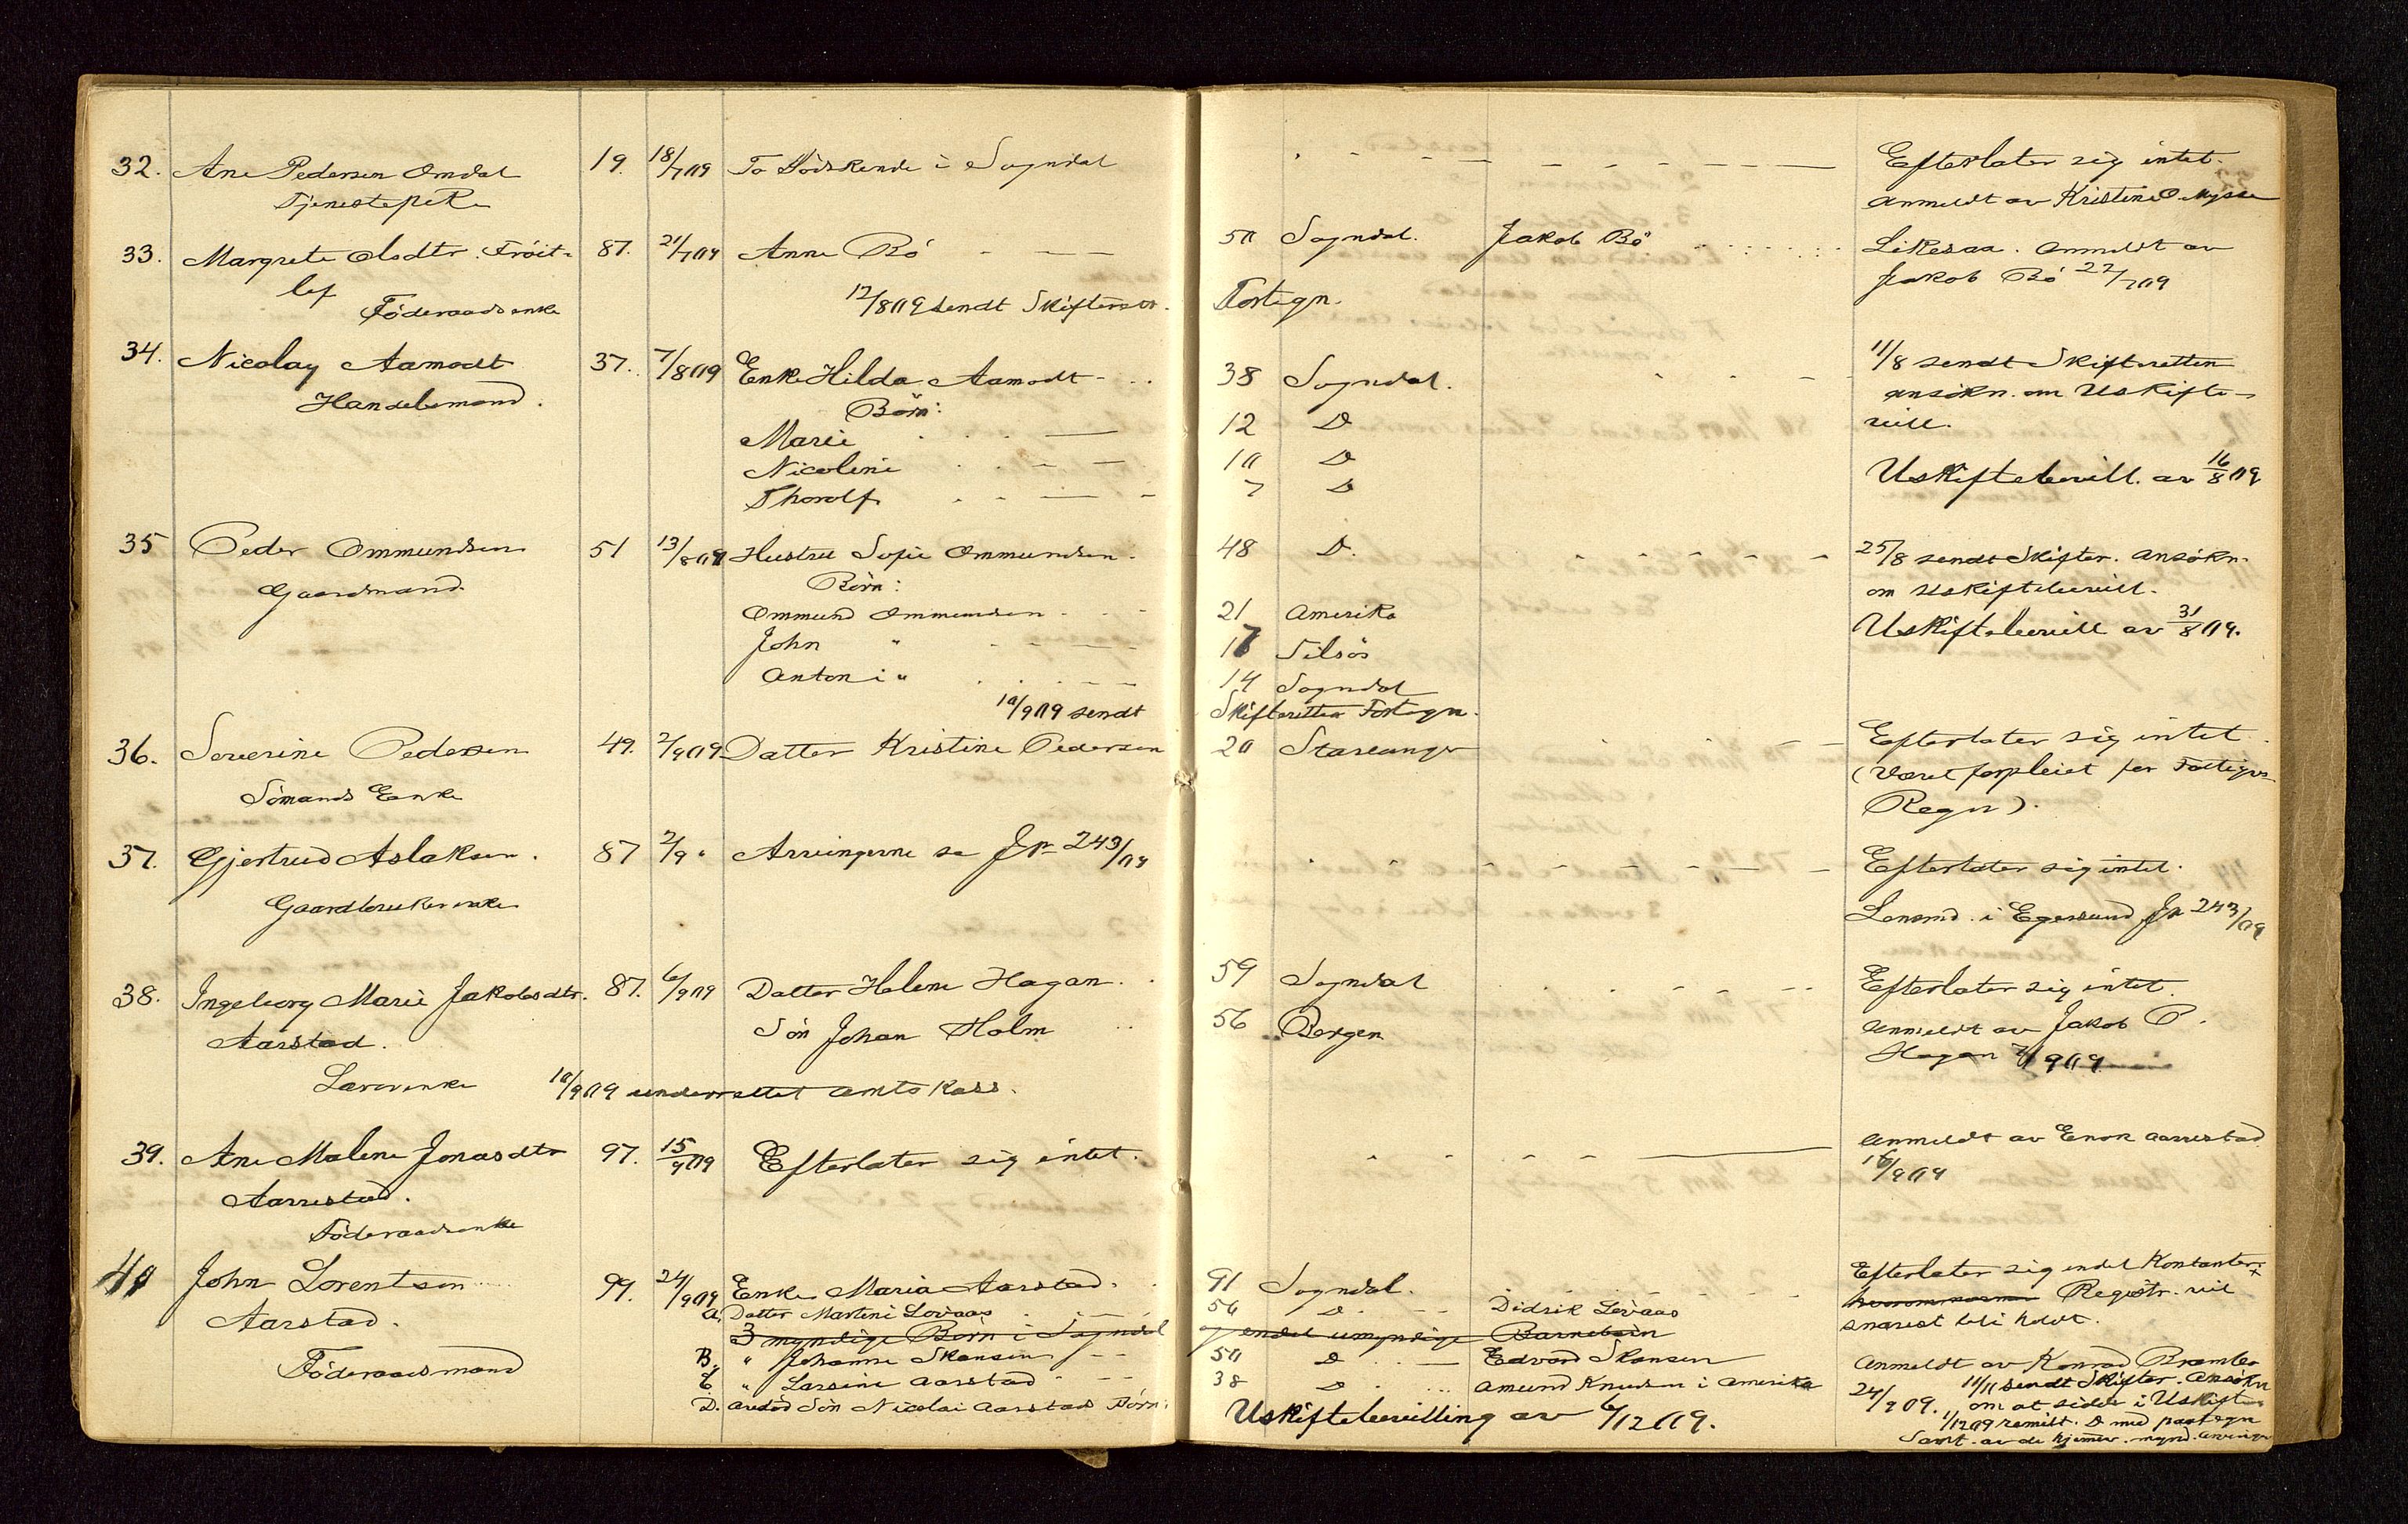 32. Ane Pedersen Omdal 19. 18/7 09 To Södskende i Sogndal Efterlater sig intet.
Tjenestepike anmeldt av Kristine O. Mysse
33. Margrete Olsdtr. Tröit- 87. 21/7 09 Anne Bö 50 Sogndal. Jakob Bö Likesaa. Anmeldt av
lef Jakob Bö 22/7 09
Föderaadsenke 12/8 09 sendt Skifteret. Fortegn.
34. Nicolay Aamodt 37. 7/8 09 Enke Hilda Aamodt 38 Sogndal. 11/8 sendt Skifteretten
Handelsmand. Börn: ansökn. om Uskifte-
Marie 12 D bevill.
Nicoline 10 D Uskiftebevill. av 16/8 09
Thorolf 7 D
35 Peder Ommundsen 51 13/8 09 Hustru Sofie Ommundsen 48 D. 25/8 sendt Skifter. ansökn.
Gaardmand. Börn: om Uskiftebevill.
Ommund Ommundsen 21 Amerika Uskiftebevill av 31/8 09.
John " 17 Silsös
Anton i " 14 Sogndal
10/9 09 sendt Skifteretten Fortegn.
36. Severine Pedersen 49. 2/9 09 Datter Kristine Pedersen 20 Stavanger Efterlater sig intet.
Sömands Enke (været forpleiet for Fattigvs
Regn).
37. Gjertrud Aslaksen. 87 2/9 " Arvingerne se Jr 243/09 Efterlater sig intet.
Gaardbrukerenke Lensmd. i Egersund Jr 243/09
38. Ingeborg Marie Jakobsdtr. 87. 6/9 09 Datter Helene Hagan. 59 Sogndal Efterlater sig intet.
Aarstad. Sön Johan Holm 56 Bergen Anmeldt av Jakob P.
Hagan 7/9 09
Lærerenke 10/9 09 underrettet Amtskass.
39. Ane Malene Jonasdtr 97. 15/9 09 Efterlater sig intet. Anmeldt av Enok Aarrestad
Aarrestad. 16/9 09
Föderaadsenke
40 John Lorentsen 99. 24/9 09 Enke Maria Aarstad. 91 Sogndal. Efterlater sig endel Kontanter
Aarstad. A, Datter Martine Lovaas 56 D. Didrik Lovaas Registr. vil
3 myndige Börn i Sogndal og endel umyndige Barnebörn snarest bli holdt.
B. " Johanne Skansen 50 D Edvard Skansen Anmeldt av Konrad
Föderaadsmand C. " Larsine Aarstad 38 D Amund Knudsen i Amerika 24/9 09. 11/11 sendt Skifter. Ansökn
D. avdöd Sön Nicolai Aarstads Börn: om at sidde i Uskift
Uskiftebevilling av 6/12 09. 1/12 09 remitt. D med paategn
Samt. av de hjemmev. mynd. arvinger